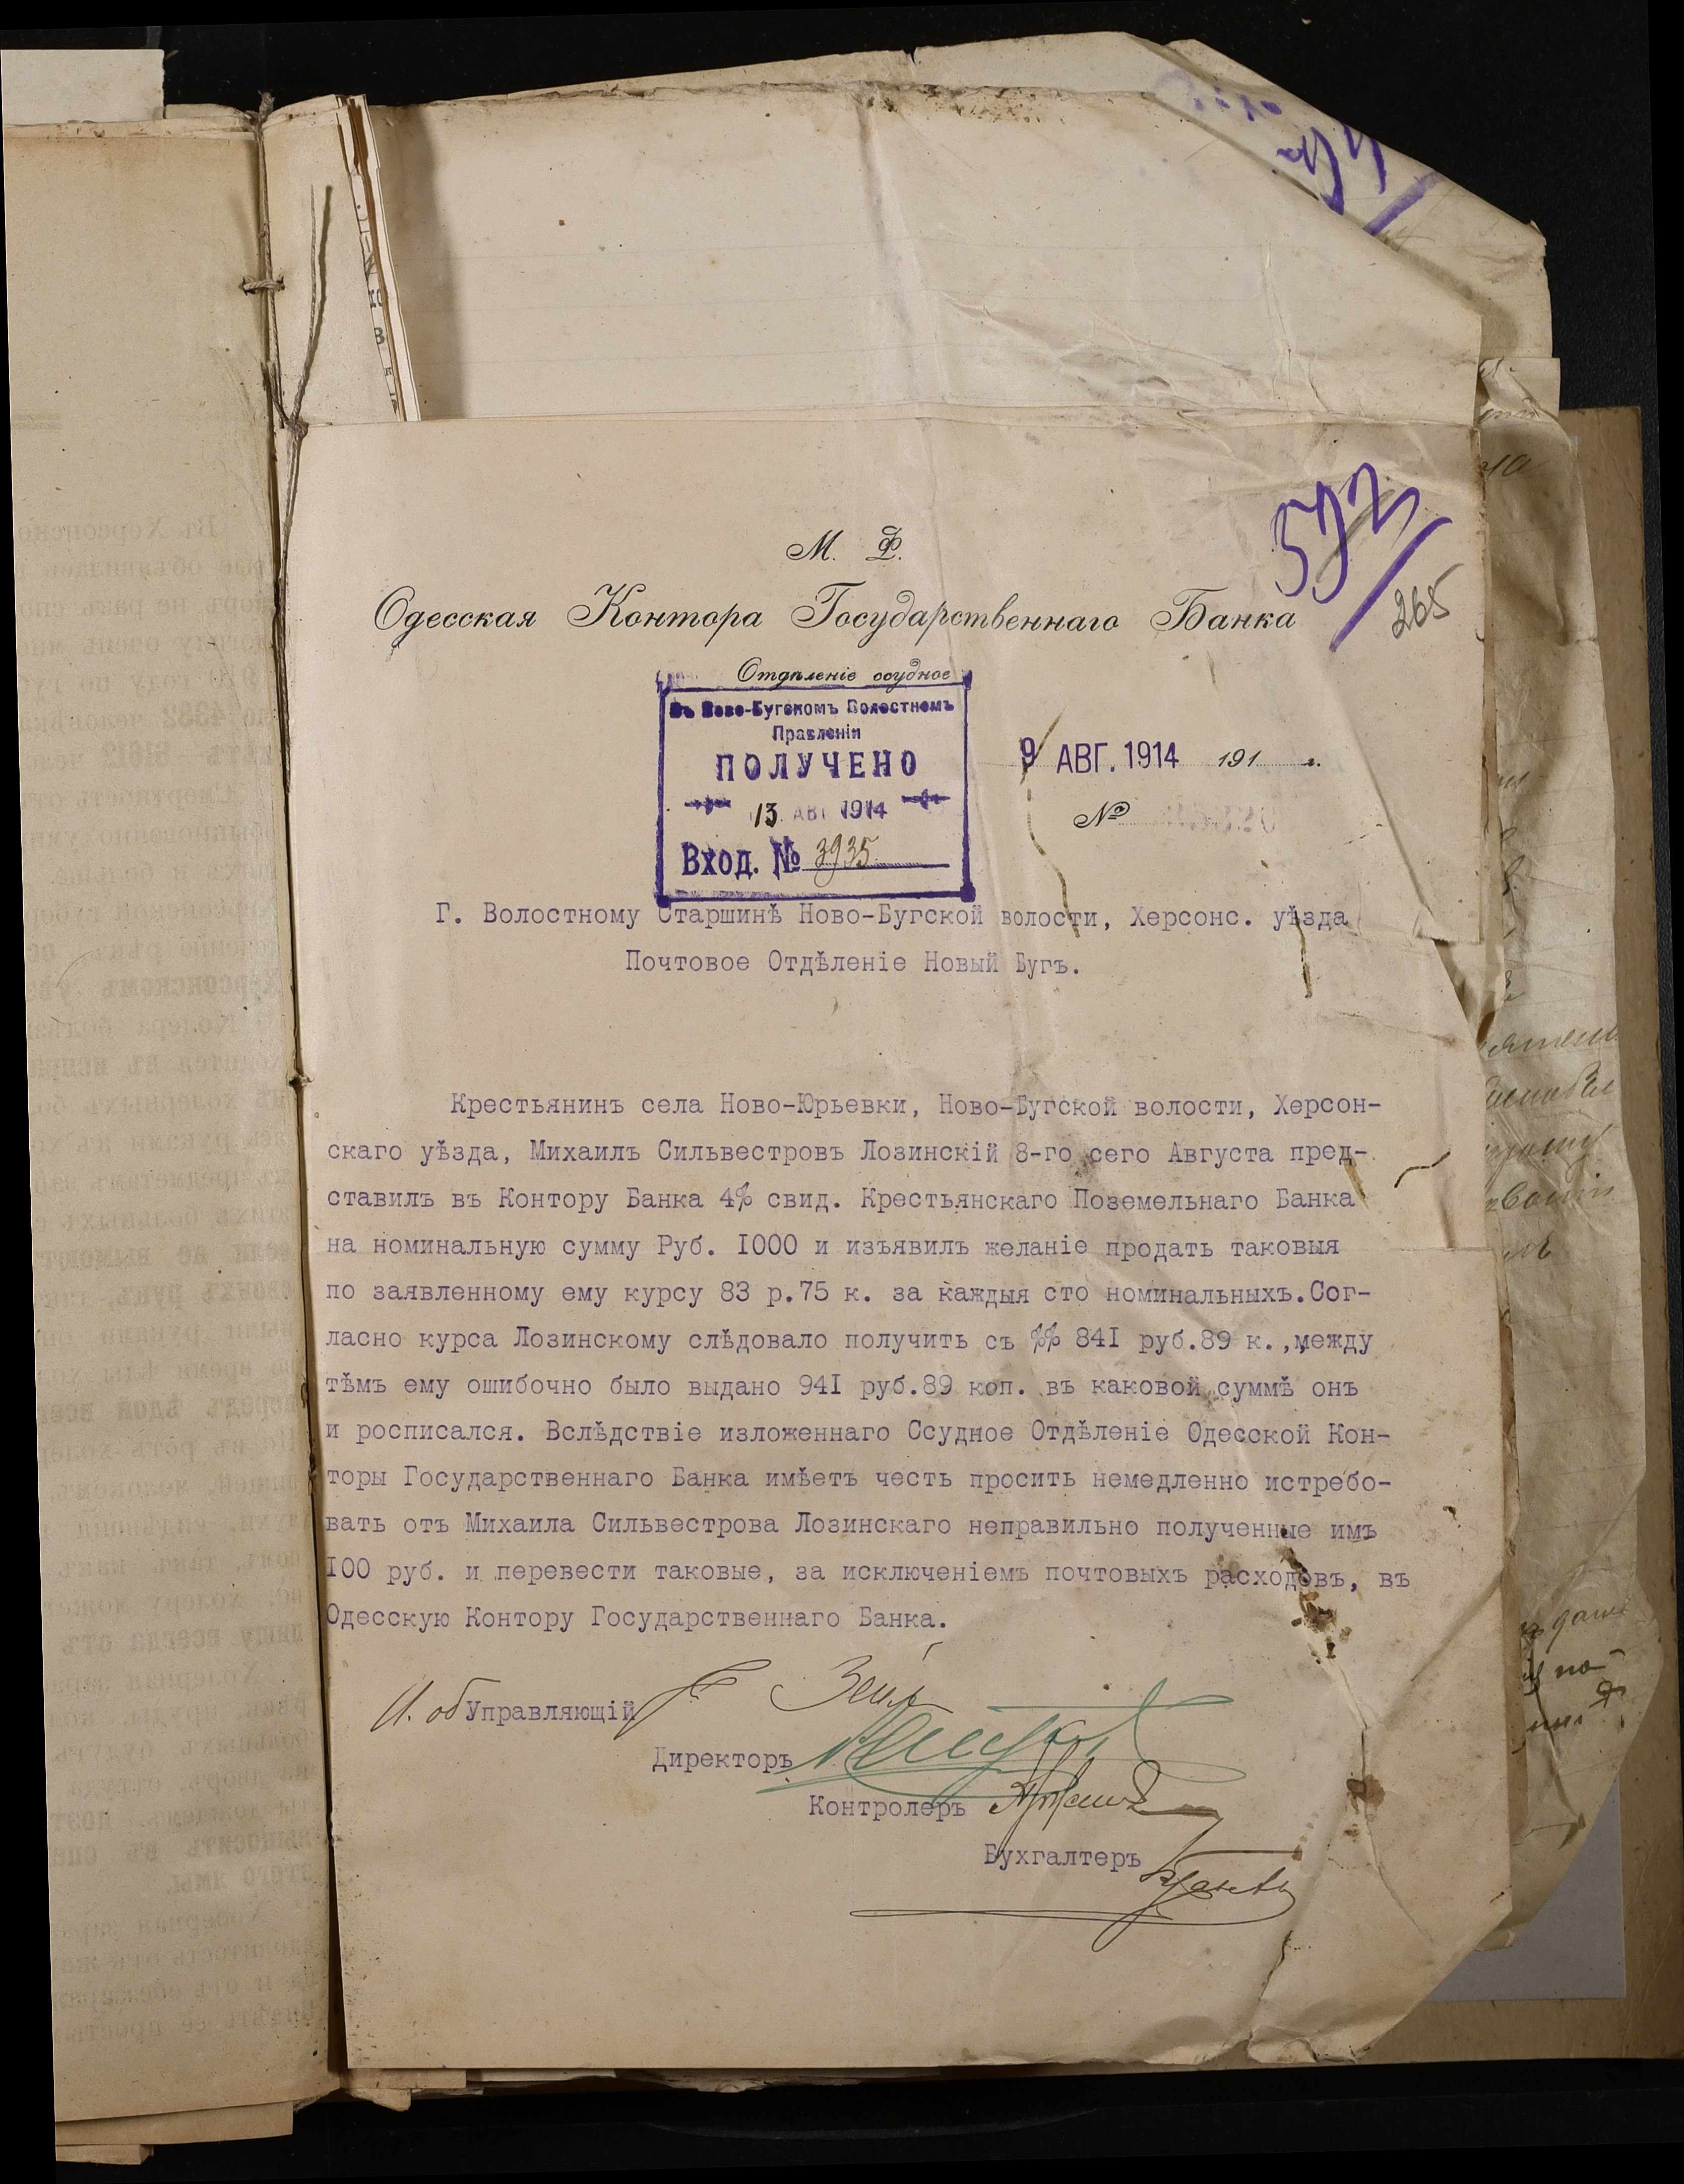 592
265
М. Ф.
Одесская Контора Государственнаго Банка
Отдѣленіе ссудное
Въ Ново-Бугскомъ Волостномъ
Правленіи
ПОЛУЧЕНО
13 АВГ 1914
Вход. № 3935
9 АВГ. 1914 191 г.
№
Г. Волостному Старшинѣ Ново-Бугской волости, Херсонс. уѣзда
Почтовое Отдѣленіе Новый Бугъ.
Крестьянинъ села Ново-Юрьевки, Ново-Бугской волости, Херсон-
скаго уѣзда, Михаилъ Сильвестровъ Лозинскій 8-го сего Августа пред-
ставилъ въ Контору Банка 4% свид. Крестьянскаго Поземельнаго Банка
на номинальную сумму Руб. I000 и изъявилъ желаніе продать таковыя
по заявленному ему курсу 83 р.75 к. за каждыя сто номинальныхъ.Сог-
ласно курса Лозинскому слѣдовало получить съ %% 84I руб.89 к.,между
тѣмъ ему ошибочно было выдано 94I руб.89 коп. въ каковой суммѣ онъ
и росписался. Вслѣдствіе изложеннаго Ссудное Отдѣленіе Одесской Кон-
торы Государственнаго Банка имѣетъ честь просить немедленно истребо-
вать отъ Михаила Сильвестрова Лозинскаго неправильно полученные имъ
I00 руб. и перевести таковые, за исключеніемъ почтовыхъ расходовъ, въ
Одесскую Контору Государственнаго Банка.
И. об Управляющій
Директоръ
Контролеръ
Бухгалтеръ